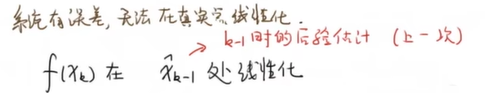 系统有误差, 无法在真实点线性化.
k-1时的后验估计 (上一次)
f(xₖ) 在 x̂ₖ₋₁ 处线性化